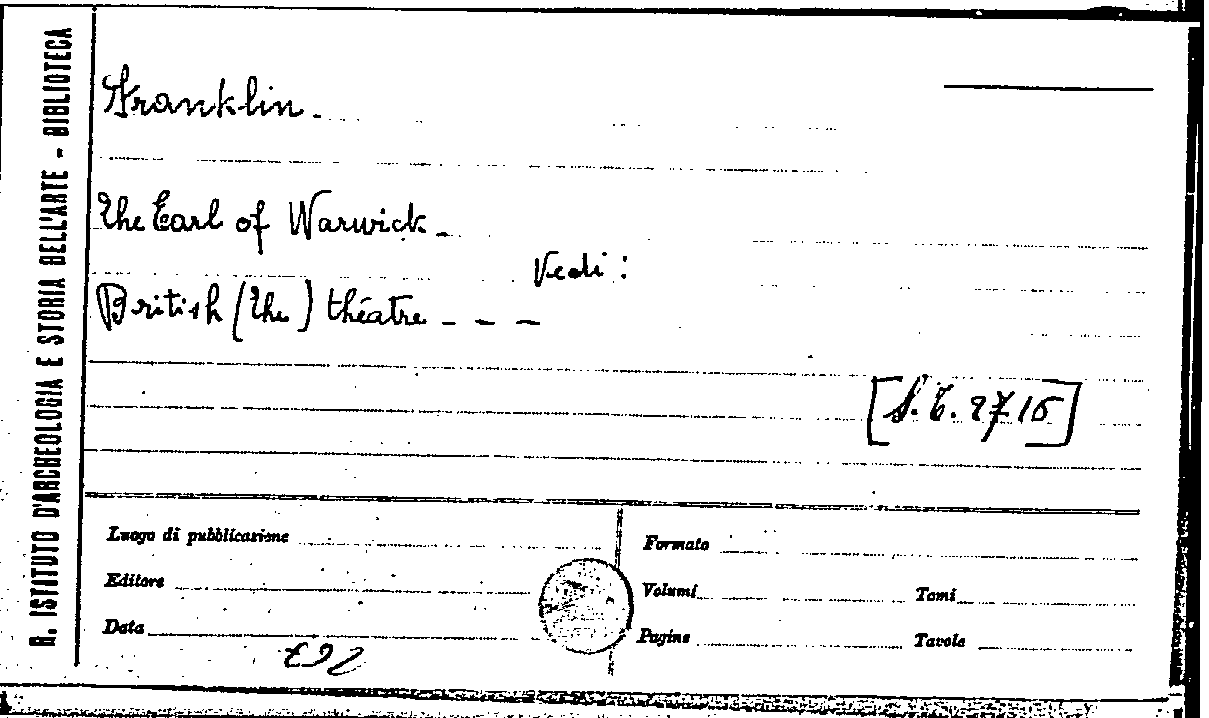 R. ISTITUTO D'ARCHEOLOGIA E STORIA DELL'ARTE - BIBLIOTECA
Franklin.
The Earl of Warwick -
Vedi:
British (The) théatre - - -
[S.T. 2716]
Luogo di pubblicazione
Formato
Editore
Volumi
Tomi
Data
Pagine
Tavole